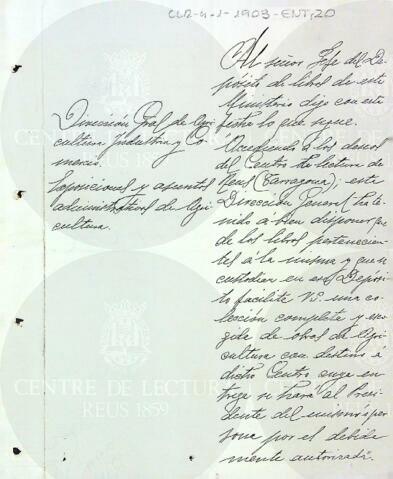 CLR-4-1-1903-ENT, 20
Dirección Gral de Agri
cultura Industria y Co
mercio.
Exposiciones y asuntos
administrativos de Agri
cultura.
Al señor Jefe del De
pósito de libros de este
Ministerio digo con esta
fecha lo que sigue.
Accediendo a los deseos
del Centro de lectura de
Reus (Tarragona); esta
Dirección General ha te
nido á bien disponer que
de los libros pertenecien
tes á la misma y que se
custodian en ese Depósi
to facilite V.S. una co
lección completa y esco
gida de obras de Agri
cultura con destino á
dicho Centro cuya en
trega se hará al Presi
dente del mismo ó per
sona por el debida
mente autorizada.
CENTRE DE LECTURA
REUS 1859
CENTRE DE LECTURA
REUS 1859